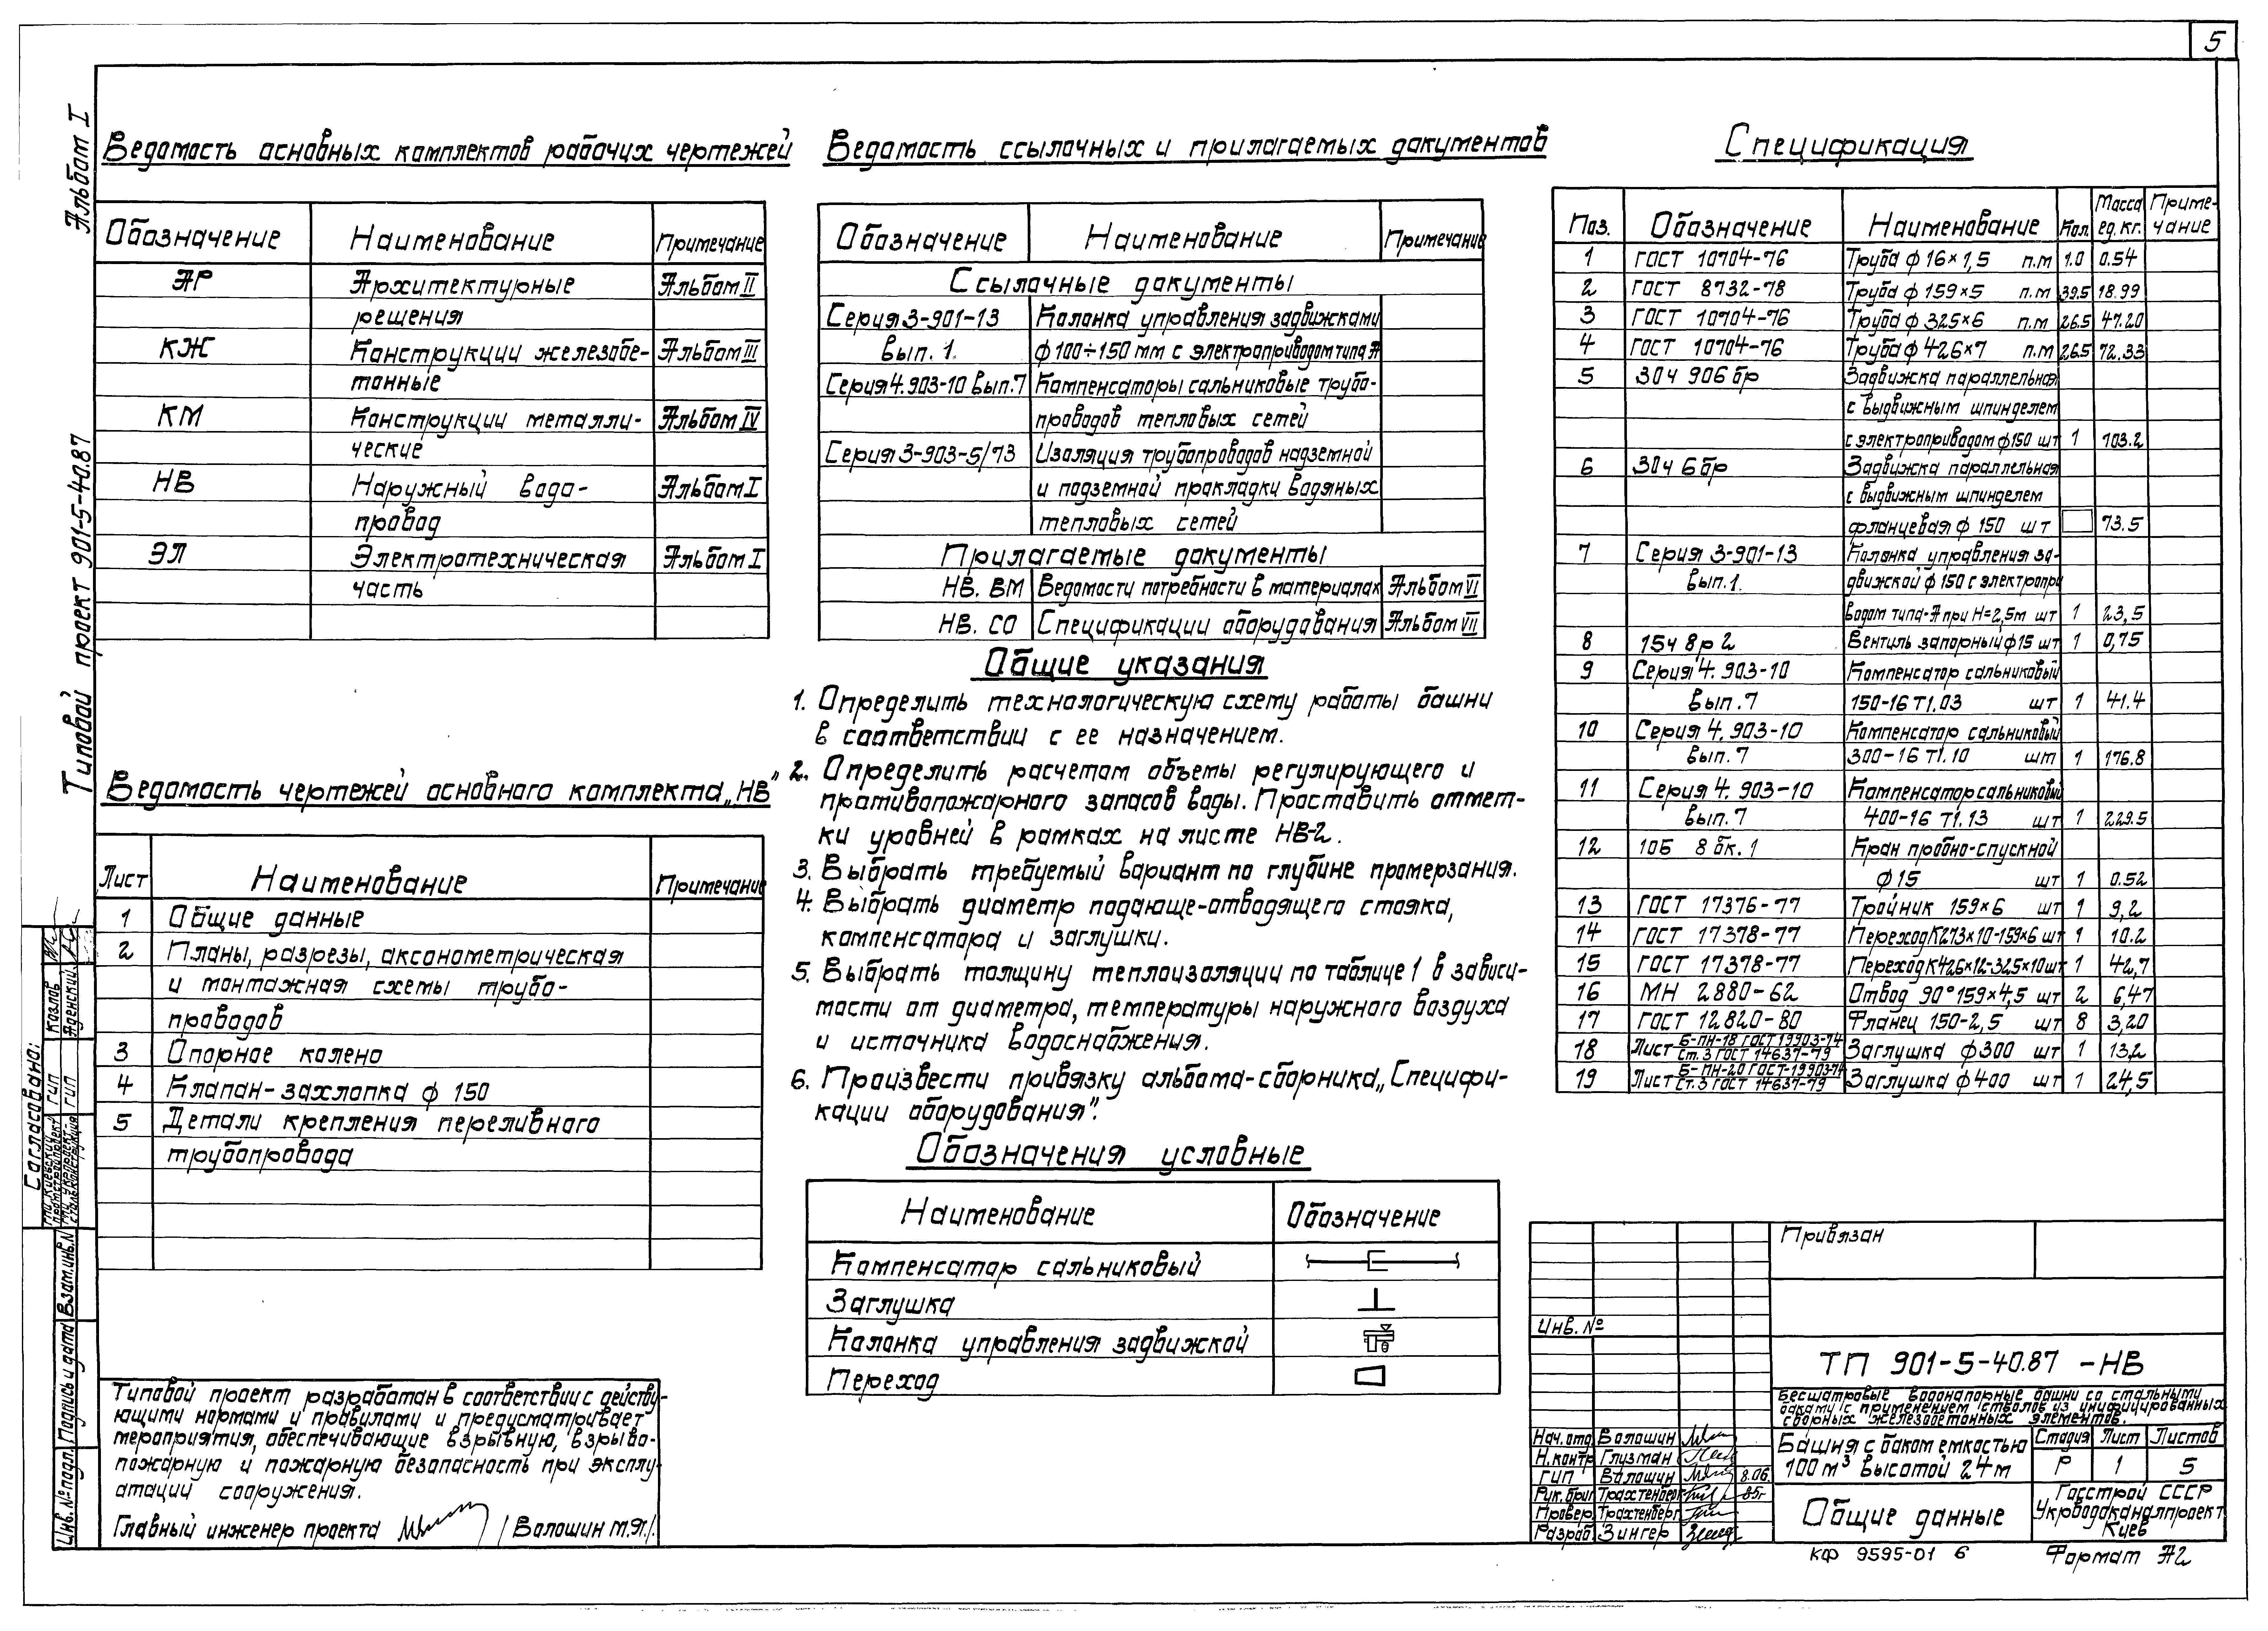 5
Альбом I
Типовой проект 901-5-40.87
Ведомость основных комплектов рабочих чертежей
Обозначение Наименование Примечание
АР Архитектурные Альбом II
решения
КЖ Конструкции железобе- Альбом III
тонные
КМ Конструкции металли- Альбом IV
ческие
НВ Наружный водо- Альбом I
провод
ЭЛ Электротехническая Альбом I
часть
Ведомость чертежей основного комплекта „НВ"
Лист Наименование Примечание
1 Общие данные
2 Планы, разрезы, аксонометрическая
и монтажная схемы трубо-
проводов
3 Опорное колено
4 Клапан-захлопка ф 150
5 Детали крепления переливного
трубопровода
Типовой проект разработан в соответствии с действу-
ющими нормами и правилами и предусматривает
мероприятия, обеспечивающие взрывную, взрыво-
пожарную и пожарную безопасность при эксплу-
атации сооружения.
Главный инженер проекта /Волошин М.Я./
Ведомость ссылочных и прилагаемых документов
Обозначение Наименование Примечание
Ссылочные документы
Серия 3-901-13 Колонка управления задвижками
вып. 1. ф 100÷150 мм с электроприводом типа А
Серия 4.903-10 вып.7 Компенсаторы сальниковые трубо-
проводов тепловых сетей
Серия 3-903-5/73 Изоляция трубопроводов надземной
и подземной прокладки водяных
тепловых сетей
Прилагаемые документы
НВ. ВМ Ведомости потребности в материалах Альбом VI
НВ. СО Спецификации оборудования Альбом VII
Общие указания
1. Определить технологическую схему работы башни
в соответствии с ее назначением.
2. Определить расчетом объемы регулирующего и
противопожарного запасов воды. Проставить отмет-
ки уровней в рамках на листе НВ-2.
3. Выбрать требуемый вариант по глубине промерзания.
4. Выбрать диаметр подающе-отводящего стояка,
компенсатора и заглушки.
5. Выбрать толщину теплоизоляции по таблице 1 в зависи-
мости от диаметра, температуры наружного воздуха
и источника водоснабжения.
6. Произвести привязку альбома-сборника „Специфи-
кации оборудования".
Обозначения условные
Наименование Обозначение
Компенсатор сальниковый
Заглушка
Колонка управления задвижкой
Переход
Спецификация
Поз. Обозначение Наименование Кол. Масса ед.кг. Приме-чание
1 ГОСТ 10704-76 Труба ф 16×1,5 п.м 1.0 0.54
2 ГОСТ 8732-78 Труба ф 159×5 п.м 39.5 18.99
3 ГОСТ 10704-76 Труба ф 325×6 п.м 26.5 47.20
4 ГОСТ 10704-76 Труба ф 426×7 п.м 26.5 72.33
5 30ч 906 бр Задвижка параллельная
с выдвижным шпинделем
с электроприводом ф150 шт 1 103.2
6 30ч 6 бр Задвижка параллельная
с выдвижным шпинделем
фланцевая ф 150 шт 73.5
7 Серия 3-901-13 Колонка управления за-
вып.1. движкой ф 150 с электропри
водом типа-А при Н=2,5м шт 1 23,5
8 15ч 8р2 Вентиль запорный ф15 шт 1 0,75
9 Серия 4.903-10 Компенсатор сальниковый
вып.7 150-16 Т1.03 шт 1 41.4
10 Серия 4.903-10 Компенсатор сальниковый
вып.7 300-16 Т1.10 шт 1 176.8
11 Серия 4.903-10 Компенсатор сальниковый
вып.7 400-16 Т1.13 шт 1 229.5
12 10Б 8 бк.1 Кран пробно-спускной
ф 15 шт 1 0.52
13 ГОСТ 17376-77 Тройник 159×6 шт 1 9,2
14 ГОСТ 17378-77 Переход К273×10-159×6 шт 1 10.2
15 ГОСТ 17378-77 Переход К426×12-325×10 шт 1 42,7
16 МН 2880-62 Отвод 90° 159×4,5 шт 2 6,47
17 ГОСТ 12820-80 Фланец 150-2,5 шт 8 3,20
18 Лист Б-ПН-18 ГОСТ 19903-74 Ст.3 ГОСТ 14637-79 Заглушка ф300 шт 1 13,2
19 Лист Б-ПН-20 ГОСТ-19903-74 Ст.3 ГОСТ 14637-79 Заглушка ф400 шт 1 24,5
Привязан
Инв. №
ТП 901-5-40.87 -НВ
Бесшатровые водонапорные башни со стальными
баками с применением стволов из унифицированных
сборных железобетонных элементов.
Нач. отд Волошин
Н.контр Глузман
ГИП Волошин 8.06.
Рук.бриг Трахтенберг 85г
Провер Трахтенберг
Разраб Зингер
Башня с баком емкостью
100 м³ высотой 24 м
Стадия Лист Листов
Р 1 5
Общие данные
Госстрой СССР
Укрводоканалпроект
Киев
КФ 9595-01 6
Формат А2
Согласовано:
ГИП Козлов
ГИП Яденский
Инв. № подл. Подпись и дата Взам.инв.N